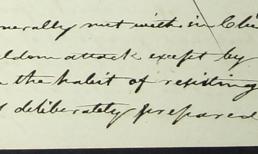 nerally met with in Chi
eldom attack except by
the habit of resisting
deliberately prepared